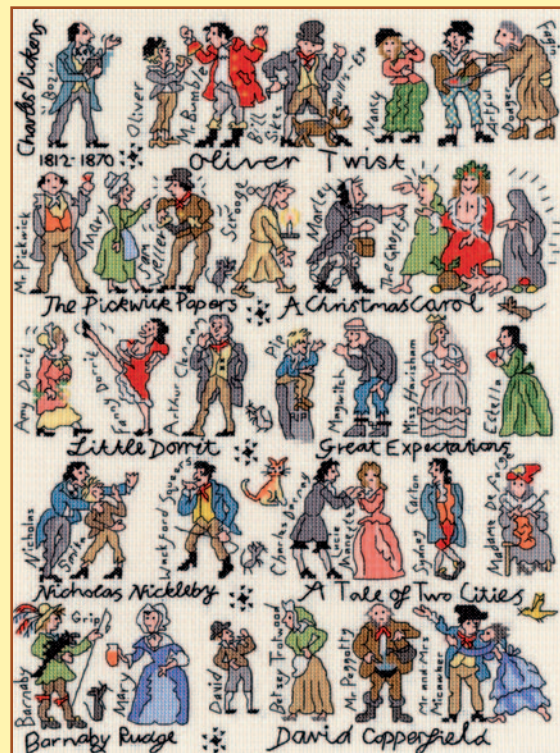 Charles Dickens
"Boz"
1812-1870
Oliver
Mr. Bumble
Bill Sikes
Bull's-Eye
Nancy
Artful Dodger
Fagin
Oliver Twist
Mr. Pickwick
Mary
Sam Weller
Scrooge
Marley
The Ghosts
The Pickwick Papers
A Christmas Carol
Amy Dorrit
Fanny Dorrit
Arthur Clennam
Pip
Magwitch
Miss Havisham
Estella
Little Dorrit
Great Expectations
Nicholas
Smike
Wackford Squeers
Charles Darnay
Lucie Manette
Sydney Carton
Madame Defarge
Nicholas Nickleby
A Tale of Two Cities
Barnaby
Grip
Mary
David
Betsey Trotwood
Mr Peggotty
Mr and Mrs Micawber
Barnaby Rudge
David Copperfield